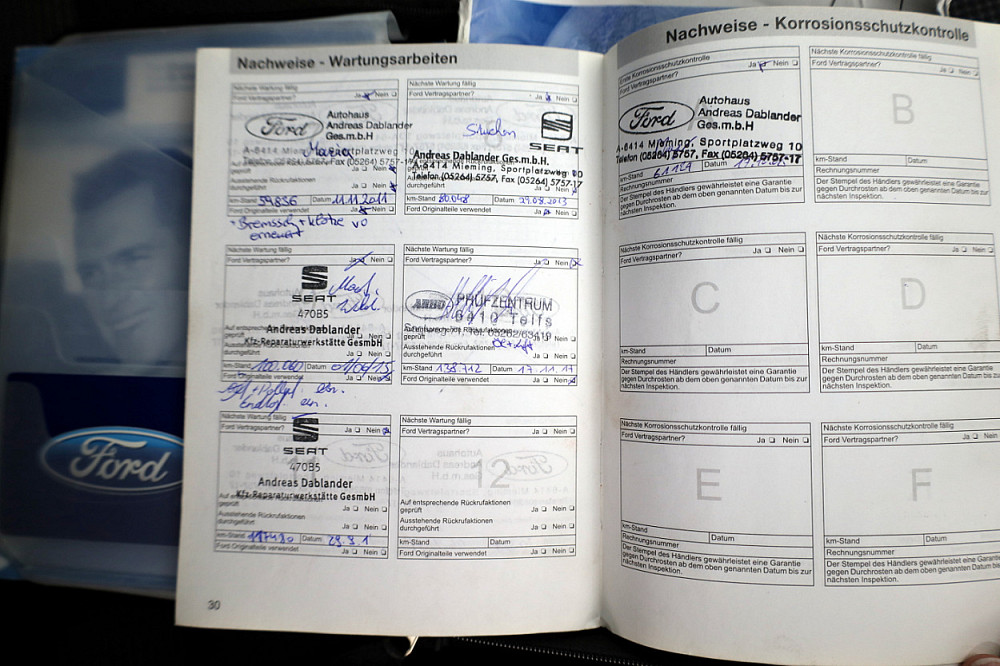 Nachweise - Wartungsarbeiten
Nächste Wartung fällig
Ford Vertragspartner? Ja Nein
Ford
Autohaus
Andreas Dablander
Ges.m.b.H
A-6414 Mieming, Sportplatzweg 10
Telefon (05264) 5757, Fax (05264) 5757-17
Ausstehende Rückrufaktionen
durchgeführt Ja Nein
km-Stand 59856 Datum 11.11.2011
Ford Originalteile verwendet Ja Nein
+ Bremssch + Klötze vo
erneuert
Nächste Wartung fällig
Ford Vertragspartner? Ja Nein
SEAT
Andreas Dablander Ges.m.b.H.
A-6414 Mieming, Sportplatzweg 10
Telefon (05264) 5757, Fax (05264) 5757-17
durchgeführt
km-Stand 80.048 Datum 29.08.2013
Ford Originalteile verwendet Ja Nein
Nächste Wartung fällig
Ford Vertragspartner? Ja Nein
SEAT
470B5
Andreas Dablander
Kfz-Reparaturwerkstätte GesmbH
Auf entsprechende Rückrufaktionen
geprüft Ja Nein
Ausstehende Rückrufaktionen
durchgeführt Ja Nein
km-Stand 100.000 Datum
Ford Originalteile verwendet Ja Nein
Nächste Wartung fällig
Ford Vertragspartner? Ja Nein
ARBÖ PRÜFZENTRUM
6410 Telfs
Auf entsprechende Rückrufaktionen
geprüft
Ausstehende Rückrufaktionen
durchgeführt Ja Nein
km-Stand 138712 Datum 17.11.17
Ford Originalteile verwendet Ja Nein
Nächste Wartung fällig
Ford Vertragspartner? Ja Nein
SEAT
470B5
Andreas Dablander
Kfz-Reparaturwerkstätte GesmbH
geprüft Ja Nein
Ausstehende Rückrufaktionen
durchgeführt Ja Nein
km-Stand Datum
Ford Originalteile verwendet Ja Nein
Nächste Wartung fällig
Ford Vertragspartner? Ja Nein
12
Auf entsprechende Rückrufaktionen
geprüft Ja Nein
Ausstehende Rückrufaktionen
durchgeführt Ja Nein
km-Stand Datum
Ford Originalteile verwendet Ja Nein
30
Ford
Nachweise - Korrosionsschutzkontrolle
Erste Korrosionsschutzkontrolle
Ford Vertragspartner? Ja Nein
Ford
Autohaus
Andreas Dablander
Ges.m.b.H
A-6414 Mieming, Sportplatzweg 10
Telefon (05264) 5757, Fax (05264) 5757-17
km-Stand Datum
Rechnungsnummer
Der Stempel des Händlers gewährleistet eine Garantie
gegen Durchrosten ab dem oben genannten Datum bis zur
nächsten Inspektion.
Nächste Korrosionsschutzkontrolle fällig
Ford Vertragspartner? Ja Nein
B
km-Stand Datum
Rechnungsnummer
Der Stempel des Händlers gewährleistet eine Garantie
gegen Durchrosten ab dem oben genannten Datum bis zur
nächsten Inspektion.
Nächste Korrosionsschutzkontrolle fällig
Ford Vertragspartner? Ja Nein
C
km-Stand Datum
Rechnungsnummer
Der Stempel des Händlers gewährleistet eine Garantie
gegen Durchrosten ab dem oben genannten Datum bis zur
nächsten Inspektion.
Nächste Korrosionsschutzkontrolle fällig
Ford Vertragspartner? Ja Nein
D
km-Stand Datum
Rechnungsnummer
Der Stempel des Händlers gewährleistet eine Garantie
gegen Durchrosten ab dem oben genannten Datum bis zur
nächsten Inspektion.
Nächste Korrosionsschutzkontrolle fällig
Ford Vertragspartner? Ja Nein
E
km-Stand Datum
Rechnungsnummer
Der Stempel des Händlers gewährleistet eine Garantie
gegen Durchrosten ab dem oben genannten Datum bis zur
nächsten Inspektion.
Nächste Korrosionsschutzkontrolle fällig
Ford Vertragspartner? Ja Nein
F
km-Stand Datum
Rechnungsnummer
Der Stempel des Händlers gewährleistet eine Garantie
gegen Durchrosten ab dem oben genannten Datum bis zur
nächsten Inspektion.